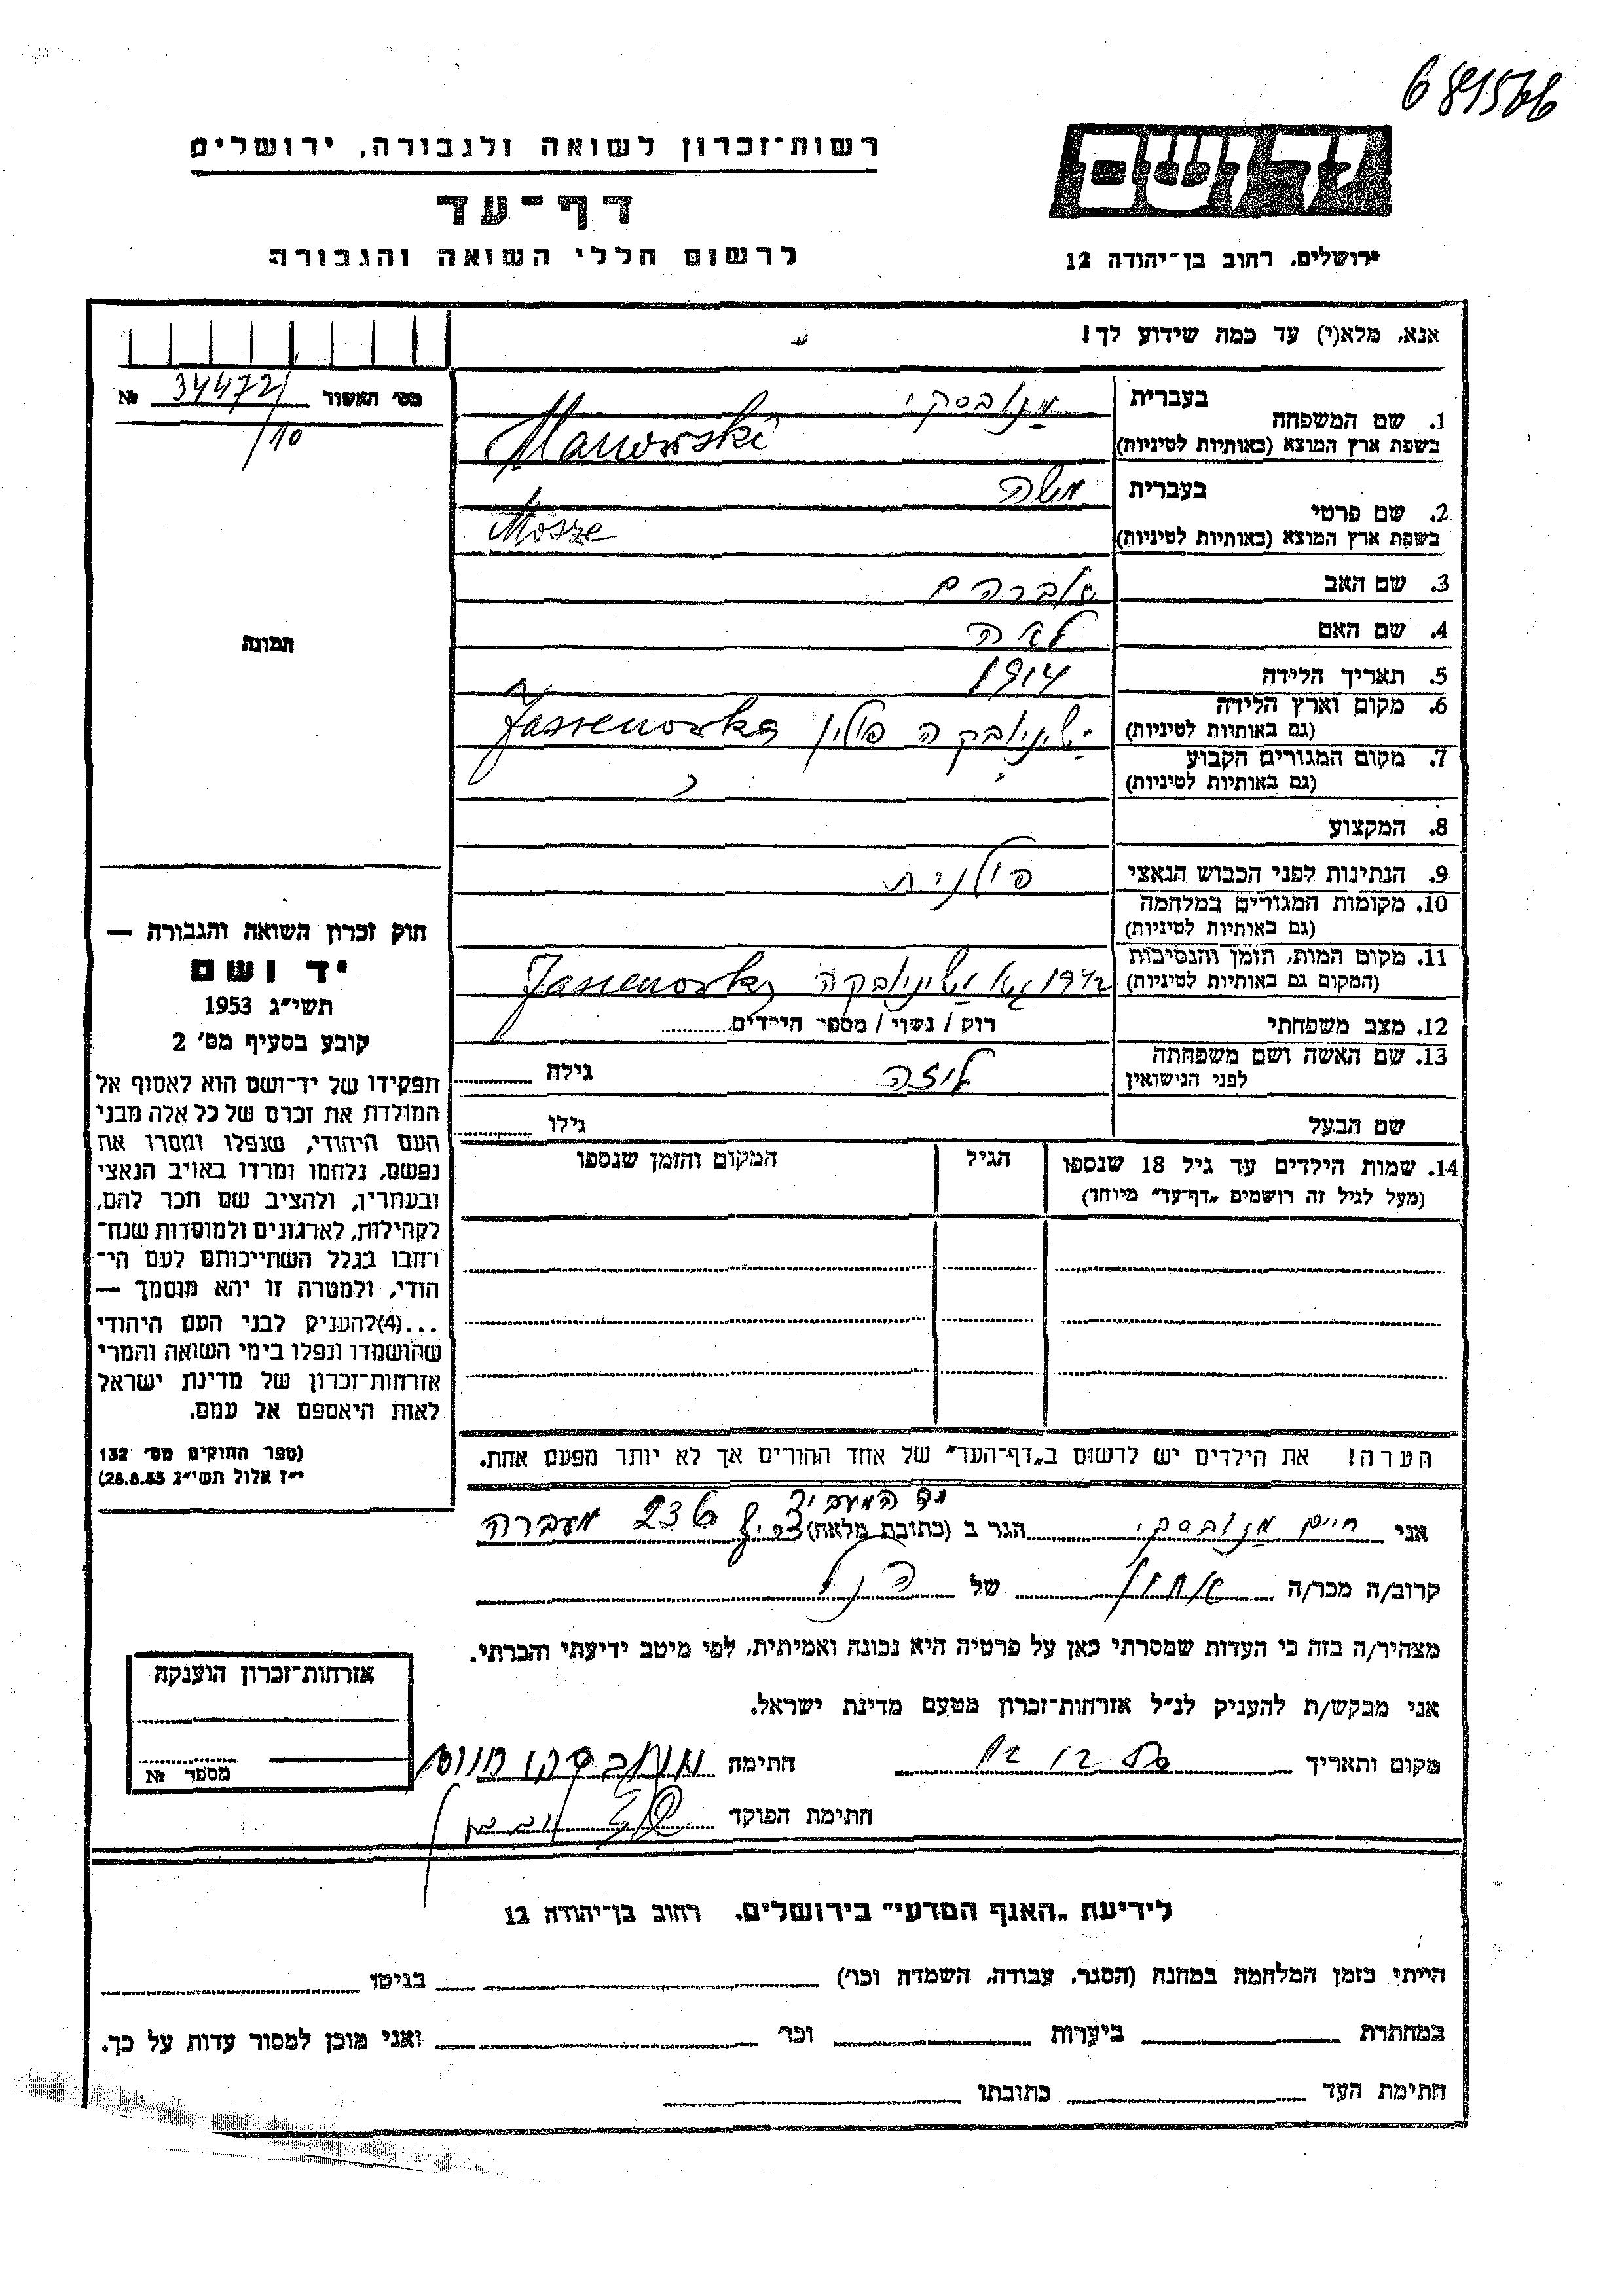 681566
ידושם
רשות־זכרון לשואה ולגבורה, ירושלים
דף־עד
לרשום חללי השואה והגבורה
ירושלים, רחוב בן־יהודה 12
אנא, מלא(י) עד כמה שידוע לך!
מס׳ האשור 34472 №
/10
1. שם המשפחה
בעברית מנובסקי
בשפת ארץ המוצא (באותיות לטיניות) Manowski
2. שם פרטי
בעברית משה
בשפת ארץ המוצא (באותיות לטיניות) Mosze
3. שם האב אברהם
4. שם האם לאה
5. תאריך הלידה 1914
6. מקום וארץ הלידה ישינובקה פולין Jassenowka
(גם באותיות לטיניות)
7. מקום המגורים הקבוע
(גם באותיות לטיניות)
8. המקצוע
9. הנתינות לפני הכבוש הנאצי פולנית
10. מקומות המגורים במלחמה
(גם באותיות לטיניות)
11. מקום המות, הזמן והנסיבות
(המקום גם באותיות לטיניות) 1942 ישינובקה Jassenowka
12. מצב משפחתי רוק / נשוי / מספר הילדים
13. שם האשה ושם משפחתה
לפני הנישואין ליזה גילה
שם הבעל גילו
14. שמות הילדים עד גיל 18 שנספו הגיל המקום והזמן שנספו
(מעל לגיל זה רושמים „דף־עד״ מיוחד)
הערה! את הילדים יש לרשום ב„דף־העד״ של אחד ההורים אך לא יותר מפעם אחת.
תמונה
חוק זכרון השואה והגבורה —
יד ושם
תשי״ג 1953
קובע בסעיף מס׳ 2
תפקידו של יד־ושם הוא לאסוף אל
המולדת את זכרם של כל אלה מבני
העם היהודי, שנפלו ומסרו את
נפשם, נלחמו ומרדו באויב הנאצי
ובעוזריו, ולהציב שם וזכר להם,
לקהילות, לארגונים ולמוסדות שנח־
רבו בגלל השתייכותם לעם הי־
הודי, ולמטרה זו יהא מוסמך —
...(4)להעניק לבני העם היהודי
שהושמדו ונפלו בימי השואה והמרי
אזרחות־זכרון של מדינת ישראל
לאות היאספם אל עמם.
(ספר החוקים מס׳ 132
י״ז אלול תשי״ג 28.8.53)
יד המעביר
אני חיים מנובסקי הגר ב (כתובת מלאה) צריף 236 מעברה
קרוב/ה מכר/ה אחיו של הנ״ל
מצהיר/ה בזה כי העדות שמסרתי כאן על פרטיה היא נכונה ואמיתית, לפי מיטב ידיעתי והכרתי.
אני מבקש/ת להעניק לנ״ל אזרחות־זכרון מטעם מדינת ישראל.
מקום ותאריך חתימה מנובסקי חיים
חתימת הפוקד
אזרחות־זכרון הוענקה
מספר №
לידיעת „האגף המדעי״ בירושלים, רחוב בן־יהודה 12
הייתי בזמן המלחמה במחנה (הסגר, עבודה, השמדה וכו׳) בגיטו
במחתרת ביערות וכו׳ ואני מוכן למסור עדות על כך.
חתימת העד כתובתו